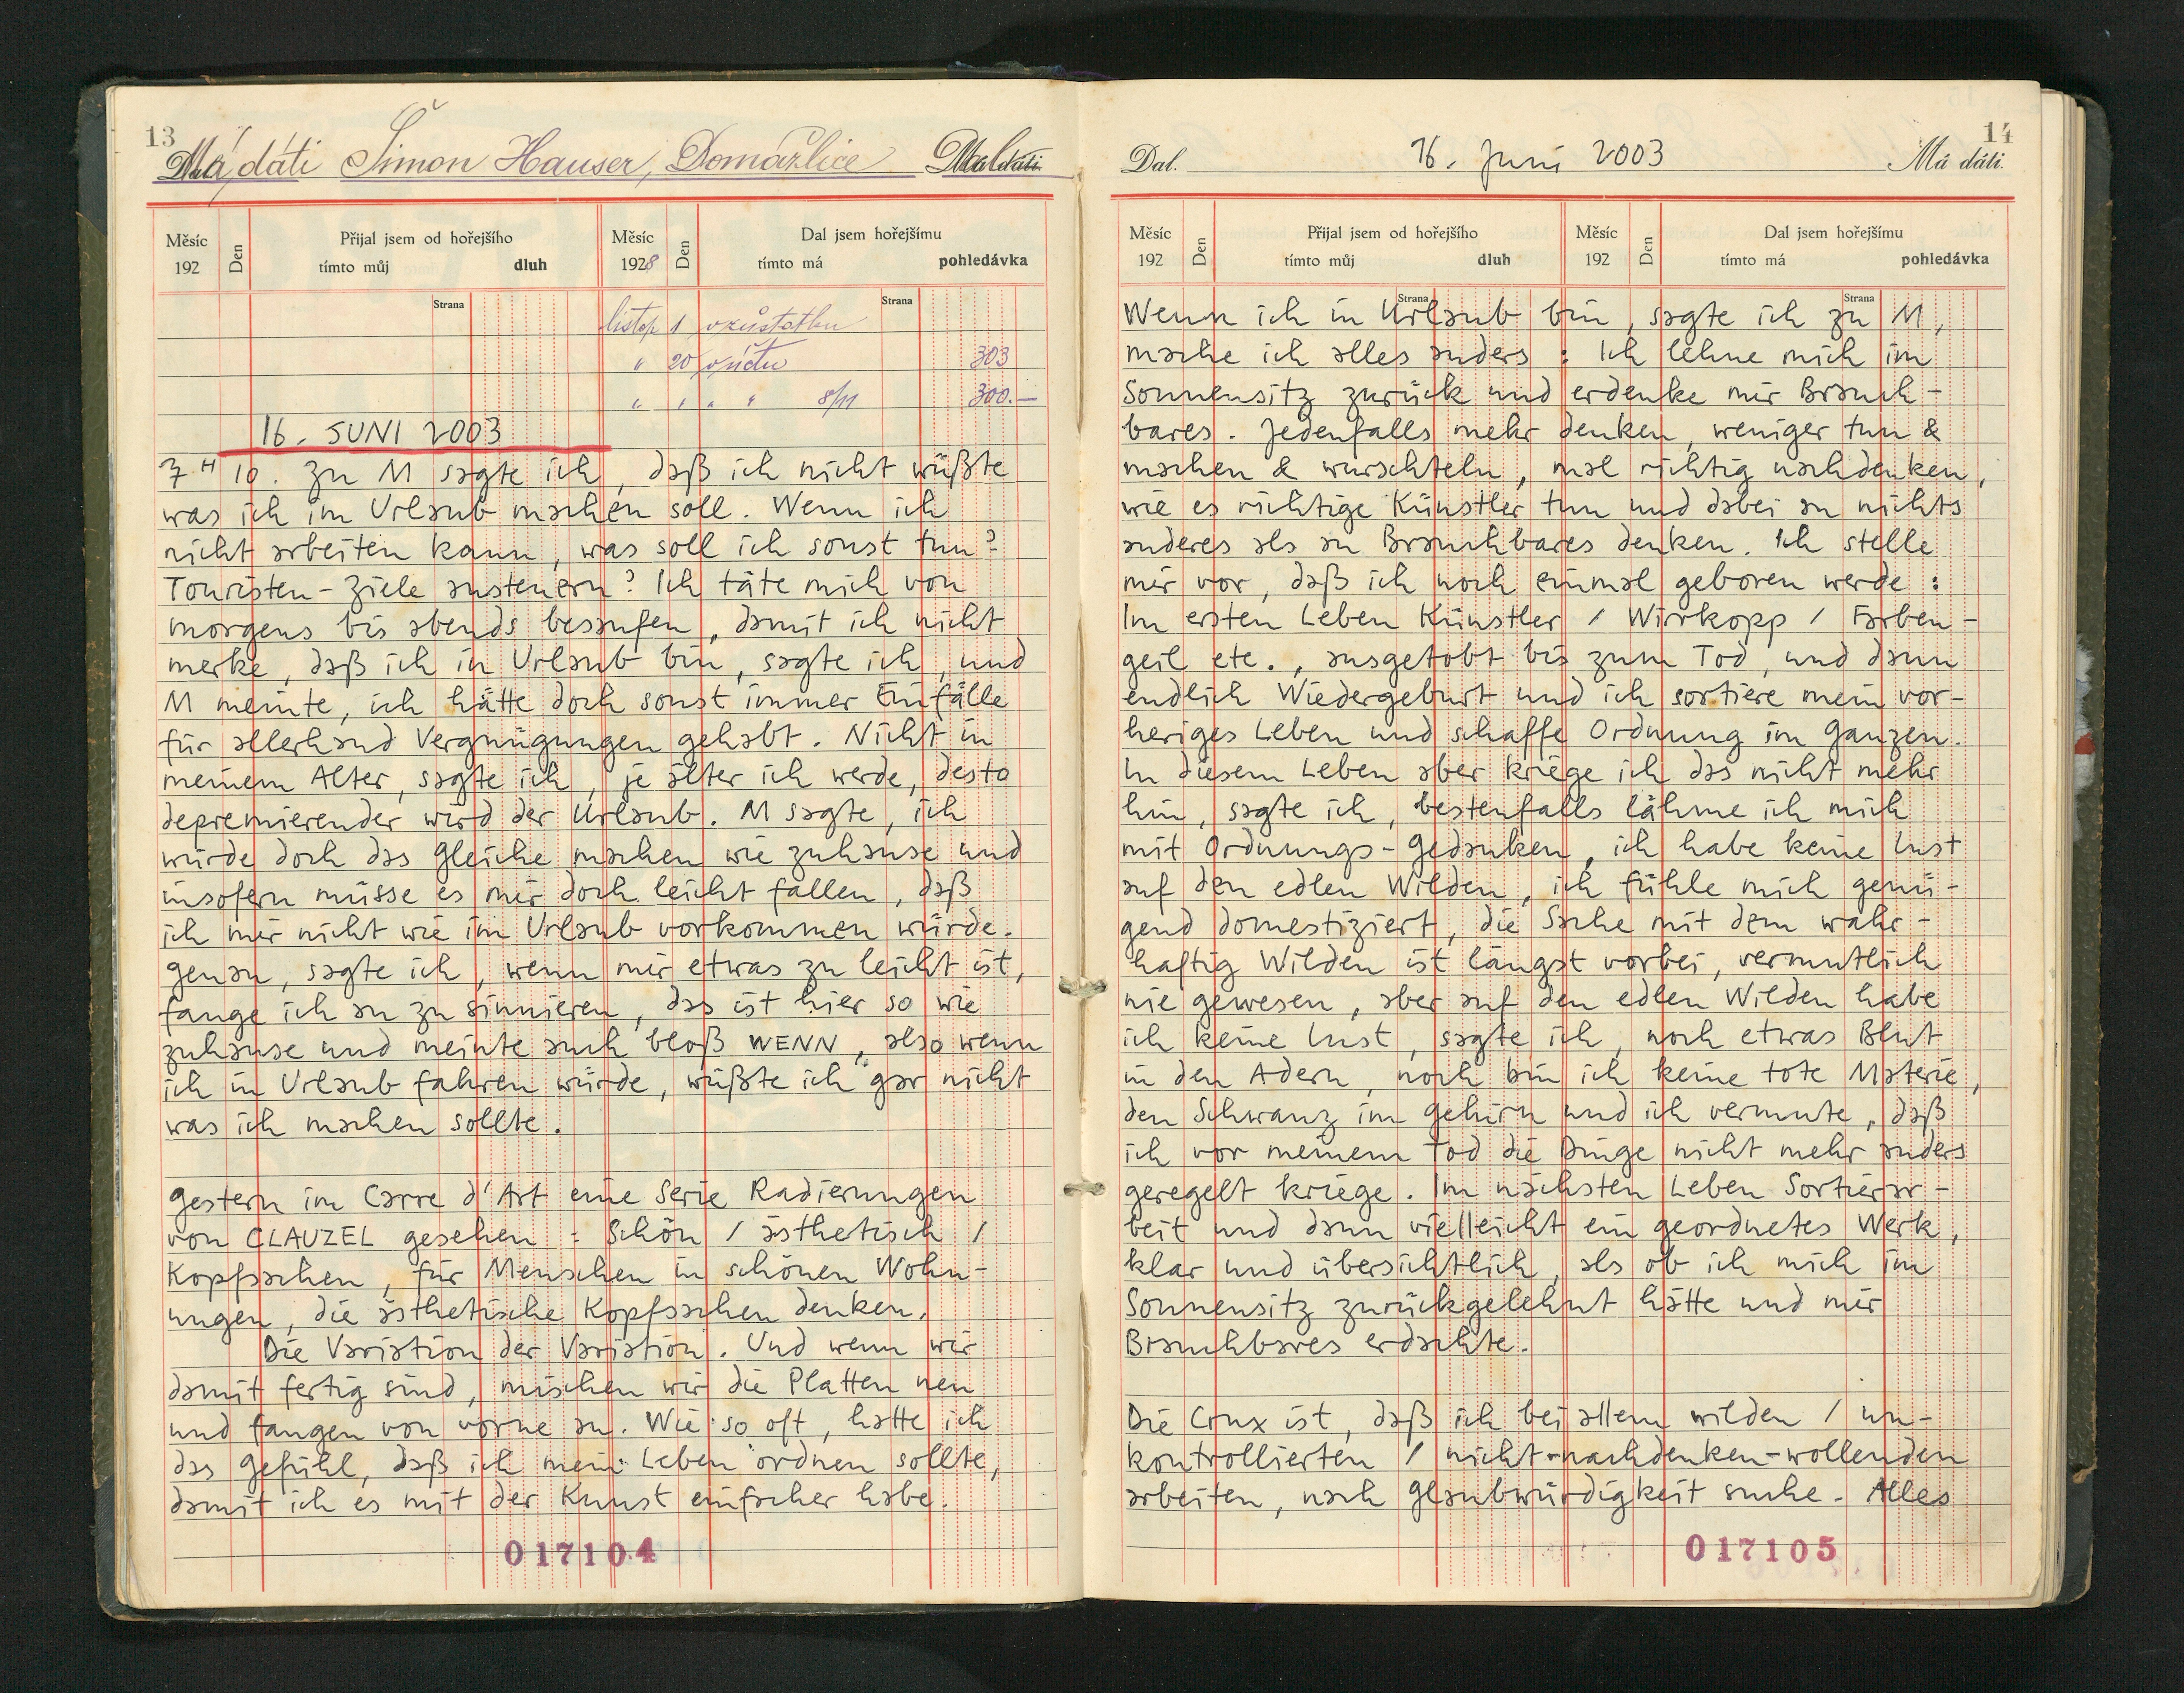 13
Má dáti Šimon Hauser, Domažlice Dal
Měsíc
192
Den
Přijal jsem od hořejšího
tímto můj dluh
Měsíc
1928
Den
Dal jsem hořejšímu
tímto má pohledávka
Strana
Strana
listop 1 vzůstatku
" 20 303
" " " " 8/11 300.—
16. JUNI 2003
7 H 10. Zu M sagte ich, daß ich nicht wüßte
was ich im Urlaub machen soll. Wenn ich
nicht arbeiten kann, was soll ich sonst tun?
Touristen-Ziele ansteuern? Ich täte mich von
morgens bis abends besaufen, damit ich nicht
merke, daß ich in Urlaub bin, sagte ich, und
M meinte, ich hätte doch sonst immer Einfälle
für allerhand Vergnügungen gehabt. Nicht in
meinem Alter, sagte ich, je älter ich werde, desto
depremierender wird der Urlaub. M sagte, ich
würde doch das Gleiche machen wie zuhause und
insofern müsse es mir doch leicht fallen, daß
ich mir nicht wie im Urlaub vorkommen würde.
Genau, sagte ich, wenn mir etwas zu leicht ist,
fange ich an zu sinnieren, das ist hier so wie
zuhause und meinte auch bloß WENN, also wenn
ich in Urlaub fahren würde, wüßte ich gar nicht
was ich machen sollte.
Gestern im Carre d'Art eine Serie Radierungen
von CLAUZEL gesehen : Schön / ästhetisch /
Kopfsachen, für Menschen in schönen Wohn-
ungen, die ästhetische Kopfsachen denken.
Die Variation der Variation. Und wenn wir
damit fertig sind, mischen wir die Platten neu
und fangen von vorne an. Wie so oft, hatte ich
das Gefühl, daß ich mein Leben ordnen sollte,
damit ich es mit der Kunst einfacher habe.
017104
14
Dal. 16. Juni 2003 Má dáti.
Měsíc
192
Den
Přijal jsem od hořejšího
tímto můj dluh
Měsíc
192
Den
Dal jsem hořejšímu
tímto má pohledávka
Strana
Strana
Wenn ich in Urlaub bin, sagte ich zu M,
mache ich alles anders : Ich lehne mich im
Sonnensitz zurück und erdenke mir Brauch-
bares. Jedenfalls mehr denken, weniger tun &
machen & wurschteln, mal richtig nachdenken,
wie es richtige Künstler tun und dabei an nichts
anderes als an Brauchbares denken. Ich stelle
mir vor, daß ich noch einmal geboren werde :
Im ersten Leben Künstler / Wirrkopp / Farben-
geil etc., ausgetobt bis zum Tod, und dann
endlich Wiedergeburt und ich sortiere mein vor-
heriges Leben und schaffe Ordnung im Ganzen.
In diesem Leben aber kriege ich das nicht mehr
hin, sagte ich, bestenfalls lähme ich mich
mit Ordnungs-Gedanken, ich habe keine Lust
auf den edlen Wilden, ich fühle mich genü-
gend domestiziert, die Sache mit dem wahr-
haftig Wilden ist längst vorbei, vermutlich
nie gewesen, aber auf den edlen Wilden habe
ich keine Lust, sagte ich, noch etwas Blut
in den Adern, noch bin ich keine tote Materie,
den Schwanz im Gehirn und ich vermute, daß
ich vor meinem Tod die Dinge nicht mehr anders
geregelt kriege. Im nächsten Leben Sortierar-
beit und dann vielleicht ein geordnetes Werk,
klar und übersichtlich, als ob ich mich im
Sonnensitz zurückgelehnt hätte und mir
Brauchbares erdachte.
Die Crux ist, daß ich bei allem wilden / un-
kontrollierten / nicht-nachdenken-wollenden
arbeiten, nach Glaubwürdigkeit suche. Alles
017105